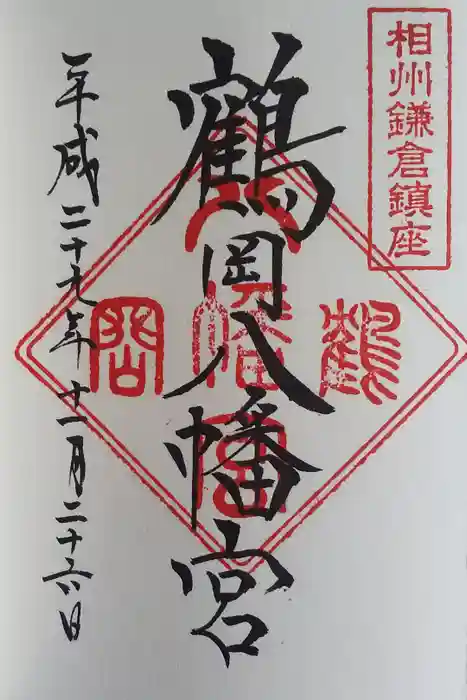 相州鎌倉鎮座
鶴岡八幡宮
鶴
八幡宮
岡
平成二十九年十一月二十六日